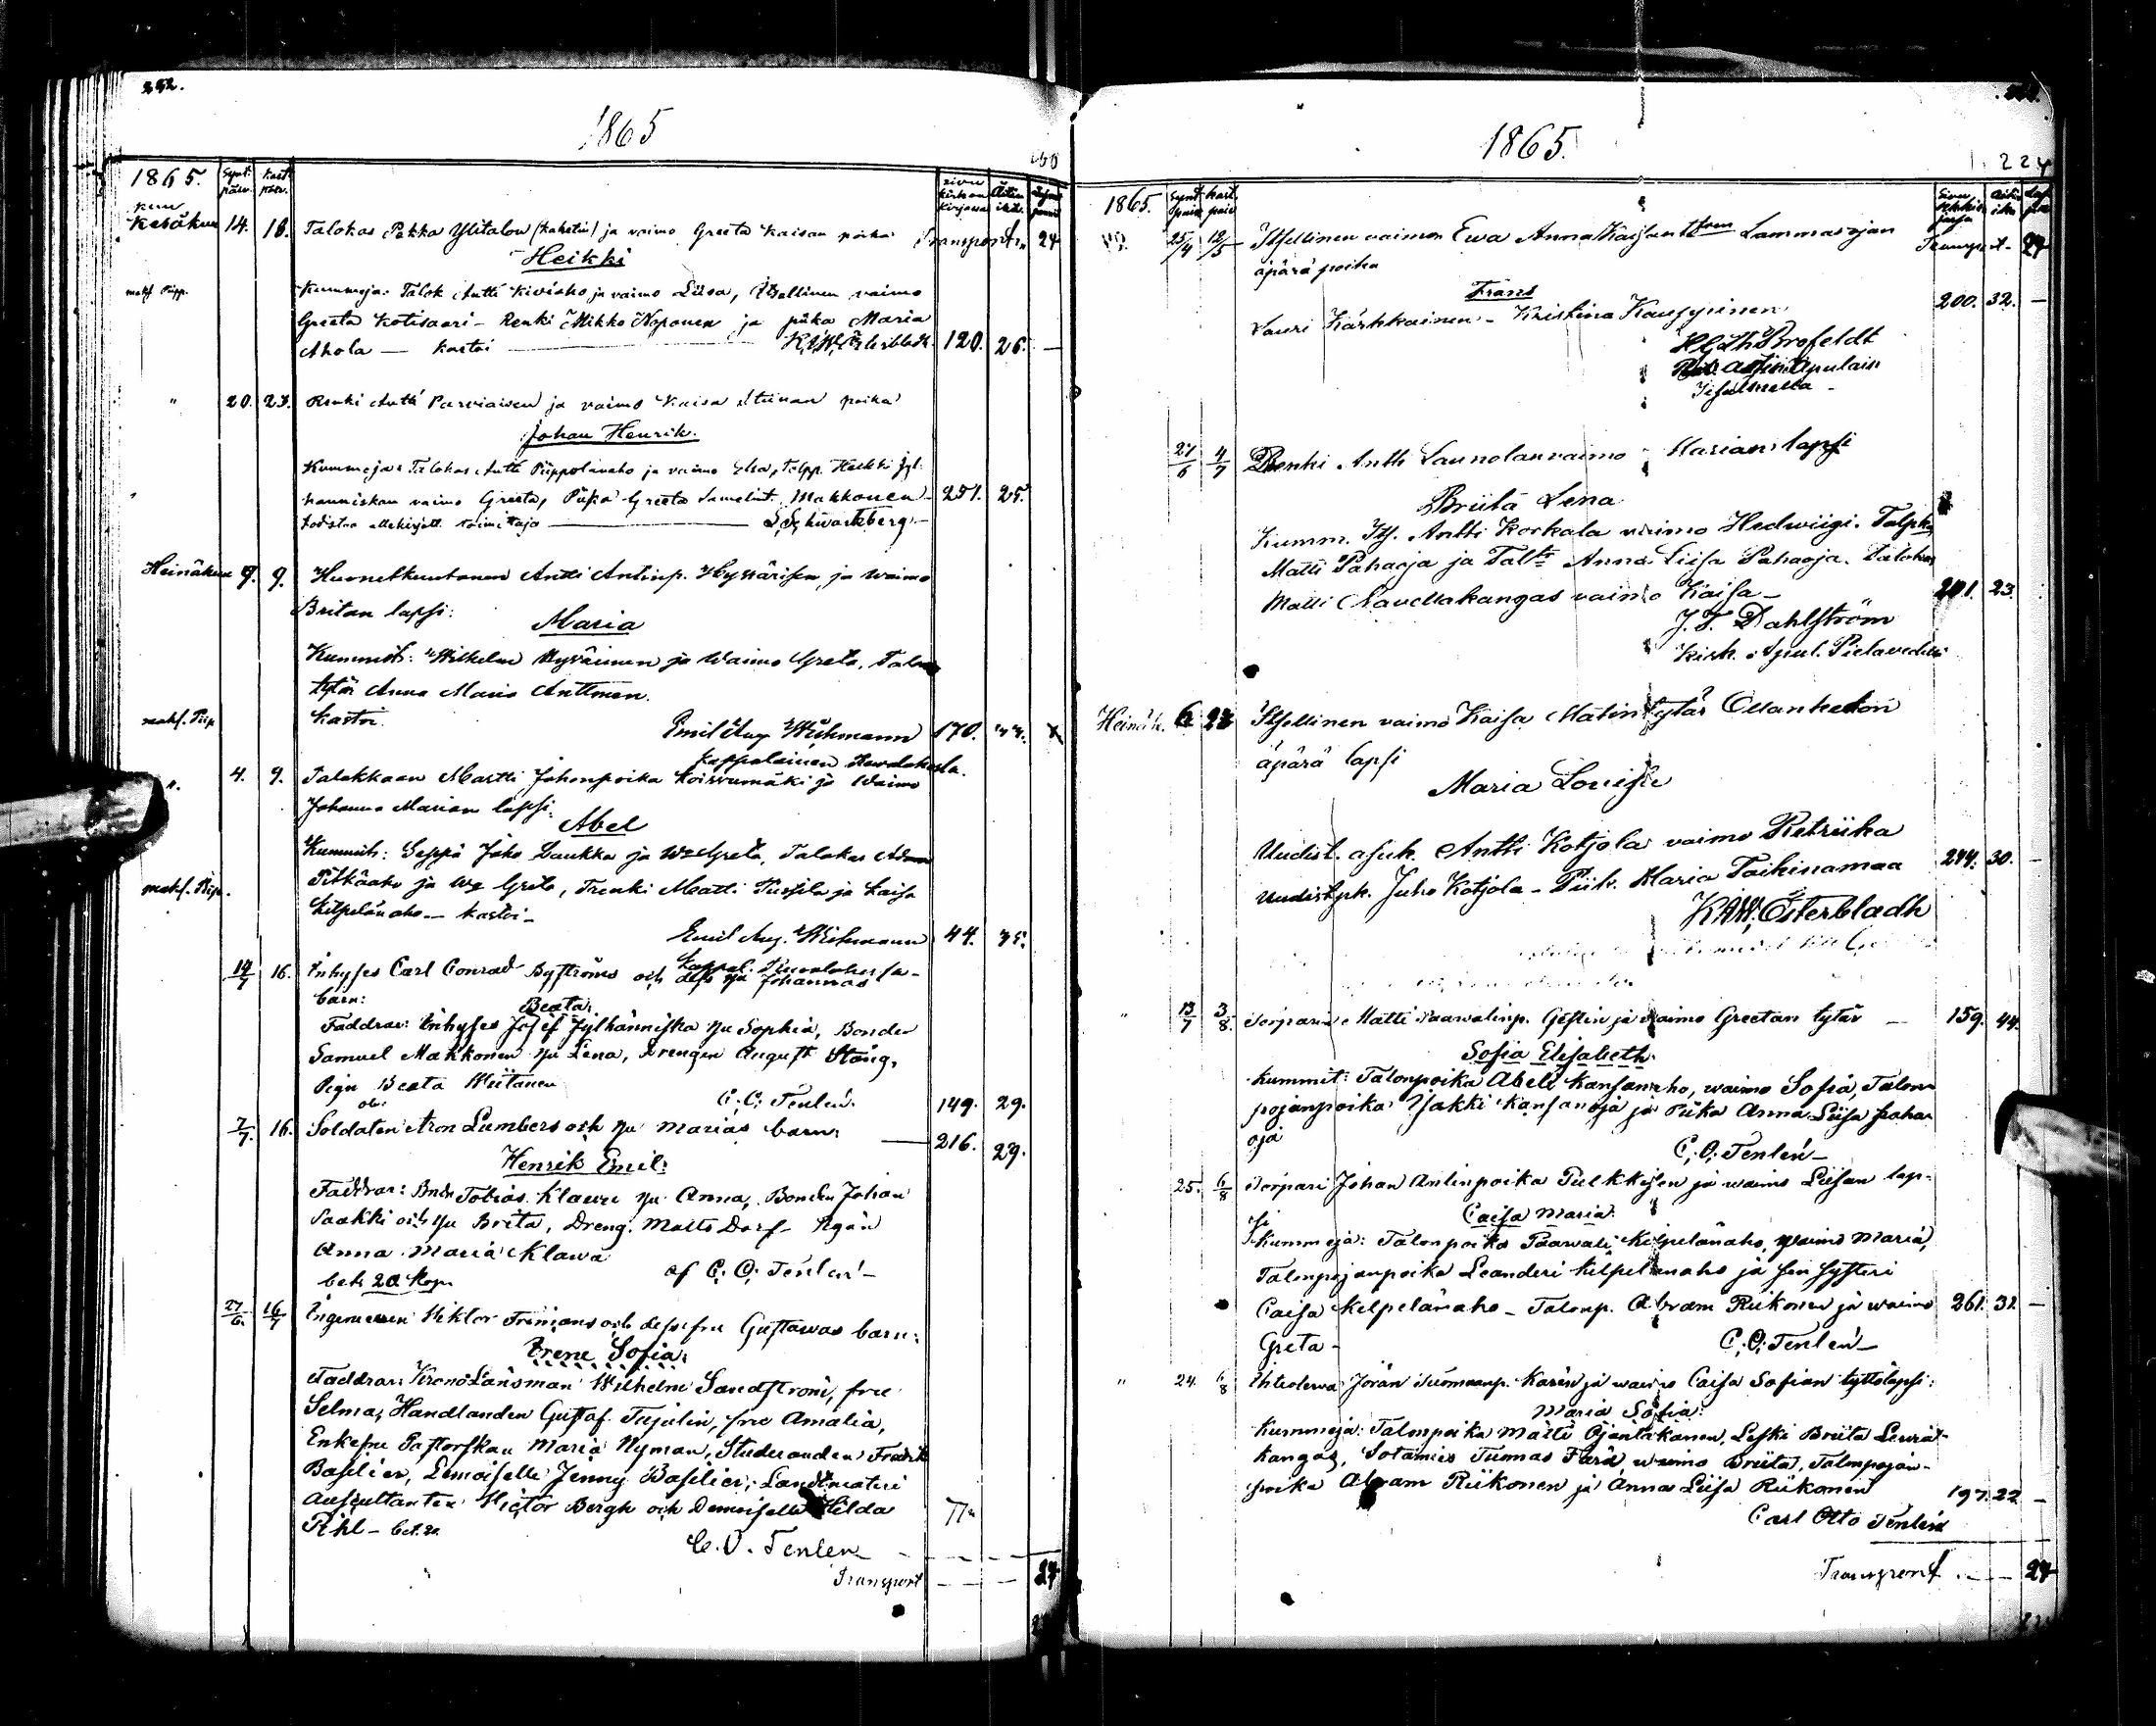 252.
1865
1865. Synt. päiv. Kast. päiv. sivu kirkon kirjassa Äitin ikä
kuu
Kesäkuu 14. 18. Talokas Pekka Ylitalon (kaksein) ja vaimo Greeta Kaisan poika Transport 24
Heikki
maks. Piip. Kummeja: Talok Antti Kivisko ja vaimo Liisa, Itsellinen vaimo
Greeta Kotisaari - Renki Mikko Naponen ja piika Maria
Ahola — kastoi — K.W. Österbladh. 120. 26. —
" 20. 23. Renki Antti Parviaisen ja vaimo Kaisa Stiinan poika
Johan Henrik.
Kummeja: Talokas Antti Piippolanaho ja vaimo Eva, Talpp. Heikki Jyl-
hanniskan vaimo Greeta, Piika Greeta Samelint. Makkonen 251. 25.
todistaa allekirjott. toimittaja — L. Schwartzberg.
Heinäkuu 9. 9. Huonetkuntanen Antti Antinp. Hyvärisen ja waimo
Britan lapsi:
Maria
Kummit: Wilhelm Hyväinen ja waimo Greta, Talon
tytär Anna Maria Anttonen.
maks. Piip kastoi
Emil Aug. Wichmann 170. 33. x
Kappalainen Kuvalahella.
". 4. 9. Talokkaan Martti Johonpoika Koivumäki ja Waimo
Johanna Marian lapsi:
Abel
Kummit: Seppä Joho Laukka ja Wo Greta, Talokas Adam
maks. Piip. Pitkäaho ja Wo Greta, Trenki Matti Pursila ja Kaisa
Kilpelänaho — kastoi —
Emil Aug. Wichmann 44. 35.
Kappal.
14/7 16. Inhyses Carl Conrad Byströms och dess hu Johannas
barn:
Beata:
Faddrar: Inhyses Josef Jylhänniska hu Sophia, Bonden
Samuel Makkonen hu Lena, Drengen August Stång,
Pigan Beata Wiitanen
C. O. Tenlén. 149. 29.
7/7. 16. Soldaten Aron Lumbers och hu Marias barn: — 216. 29.
Henrik Emil:
Faddrar: Bnde Tobias Klawu hu Anna, Bonden Johan
Paakki och hu Brita, Dreng. Matts Dorf - Pigan
Anna Maria Klawa
bet. 20 kop. af C. O. Tenlén —
27/6. 16/7 Ingenieuren Viktor Frimans och dess fru Gustawas barn:
Irene Sofia:
Faddrar: Krono Länsman Wilhelm Sandström, fru
Selma, Handlanden Gustaf Tujulin, fru Amalia,
Enkefru Pastorskan Maria Nyman, Studeranden Fredrik
Basilier, Demoiselle Jenny Basilier; Landtmäteri
Auscultanten Victor Bergh och Demoiselle Hilda
Pihl - bet. 20.
C. O. Tenlen —
Transport — — — 24
1865.
224
1865. Synt. päiv. Kast. päiv.
25/4 12/5 Itsellinen vaimon Ewa Anna Kaisan Lammasojan Transport - 24
äpärä poika
Frans
Lauri Kärkkainen - Kristina Kauppinen 200. 32. —
H. G. Th. Brofeldt
Apulain
Iisalmella —
27/6 4/7 Renki Antti Launolan vaimo Marian lapsi
Briita Lena
Kumm. Its. Antti Korkala vaimo Hedwiigi. Talpka
Matti Pahaoja ja Talts Anna Liisa Pahaoja. Talokas
Matti Navettakangas vaimo Kaisa — 201. 23.
J. F. Dahlström
Kirk. Apul. Pielavedellä
Heinäk. 6 23 Itsellinen vaimo Kaisa Matintytär Ollankedon
äpärä lapsi
Maria Louisa
Uudist. asuk. Antti Kotjola vaimo Retriika
Uudist.pk. Juho Kotjola - Piik. Maria Taikinamaa 244. 30. —
K.W. Österbladh
" 13/7 3/8. Torpari Matti Paawalinp. Gestin ja waimo Greetan tytär — 159. 44.
Sofia Elisabeth.
Kummit: Talonpoika Abeli Kansanaho, waimo Sofia, Talon
pojanpoika Jakki Kansanoja ja Piika Anna Liisa Paha-
oja
C. O. Tenlén —
25. 6/8 Torpari Johan Antinpoika Pulkkisen ja waimo Liisan lap-
si Caisa Maria:
Kummeja: Talonpoika Paawali Kilpelänaho, waimo Maria,
Talonpojanpoika Leanderi Kilpelänaho ja sen systeri
Caisa Kelpelänaho - Talonp. Abram Riikonen ja waimo 261. 31. —
Greta - C. O. Tenlén —
" 24. 6/8 Jöran Tuomaanp. Karin ja waimo Caisa Sofian tyttölapsi:
Maria Sofia:
Kummeja: Talonpoika Matti Ojantakanen, Leski Briita Lewiä-
kangas, Sotamies Tuomas Färä waimo Briita, Talonpojan-
poika Abram Riikonen ja Anna Liisa Riikonen 197. 22 —
Carl Otto Tenlén
Transport — — 24